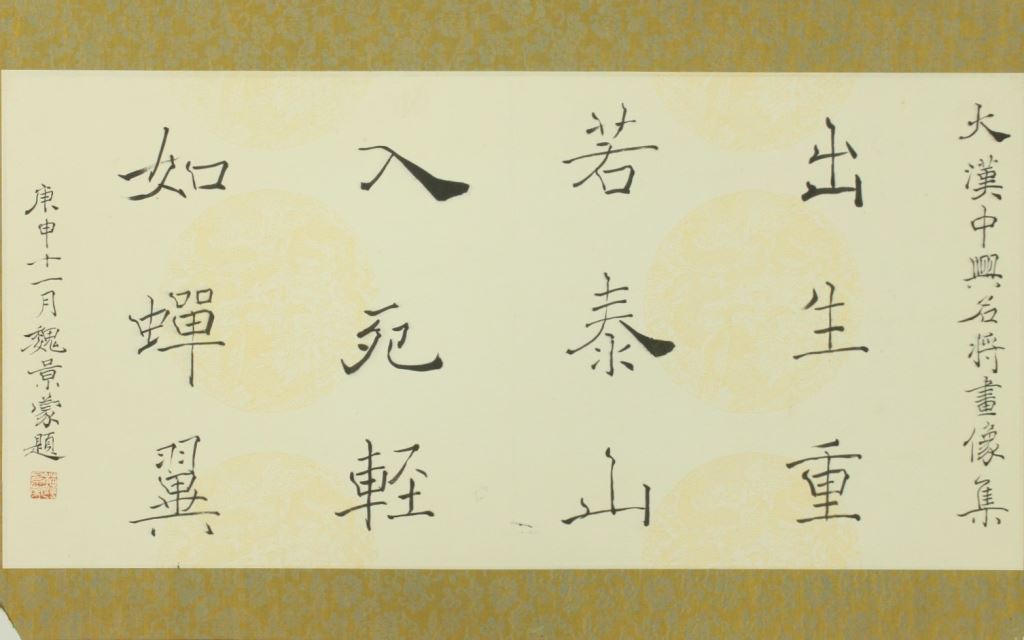 大漢中興名將畫像集
出生重
若泰山
入死輕
如蟬翼
庚申十一月魏景蒙題